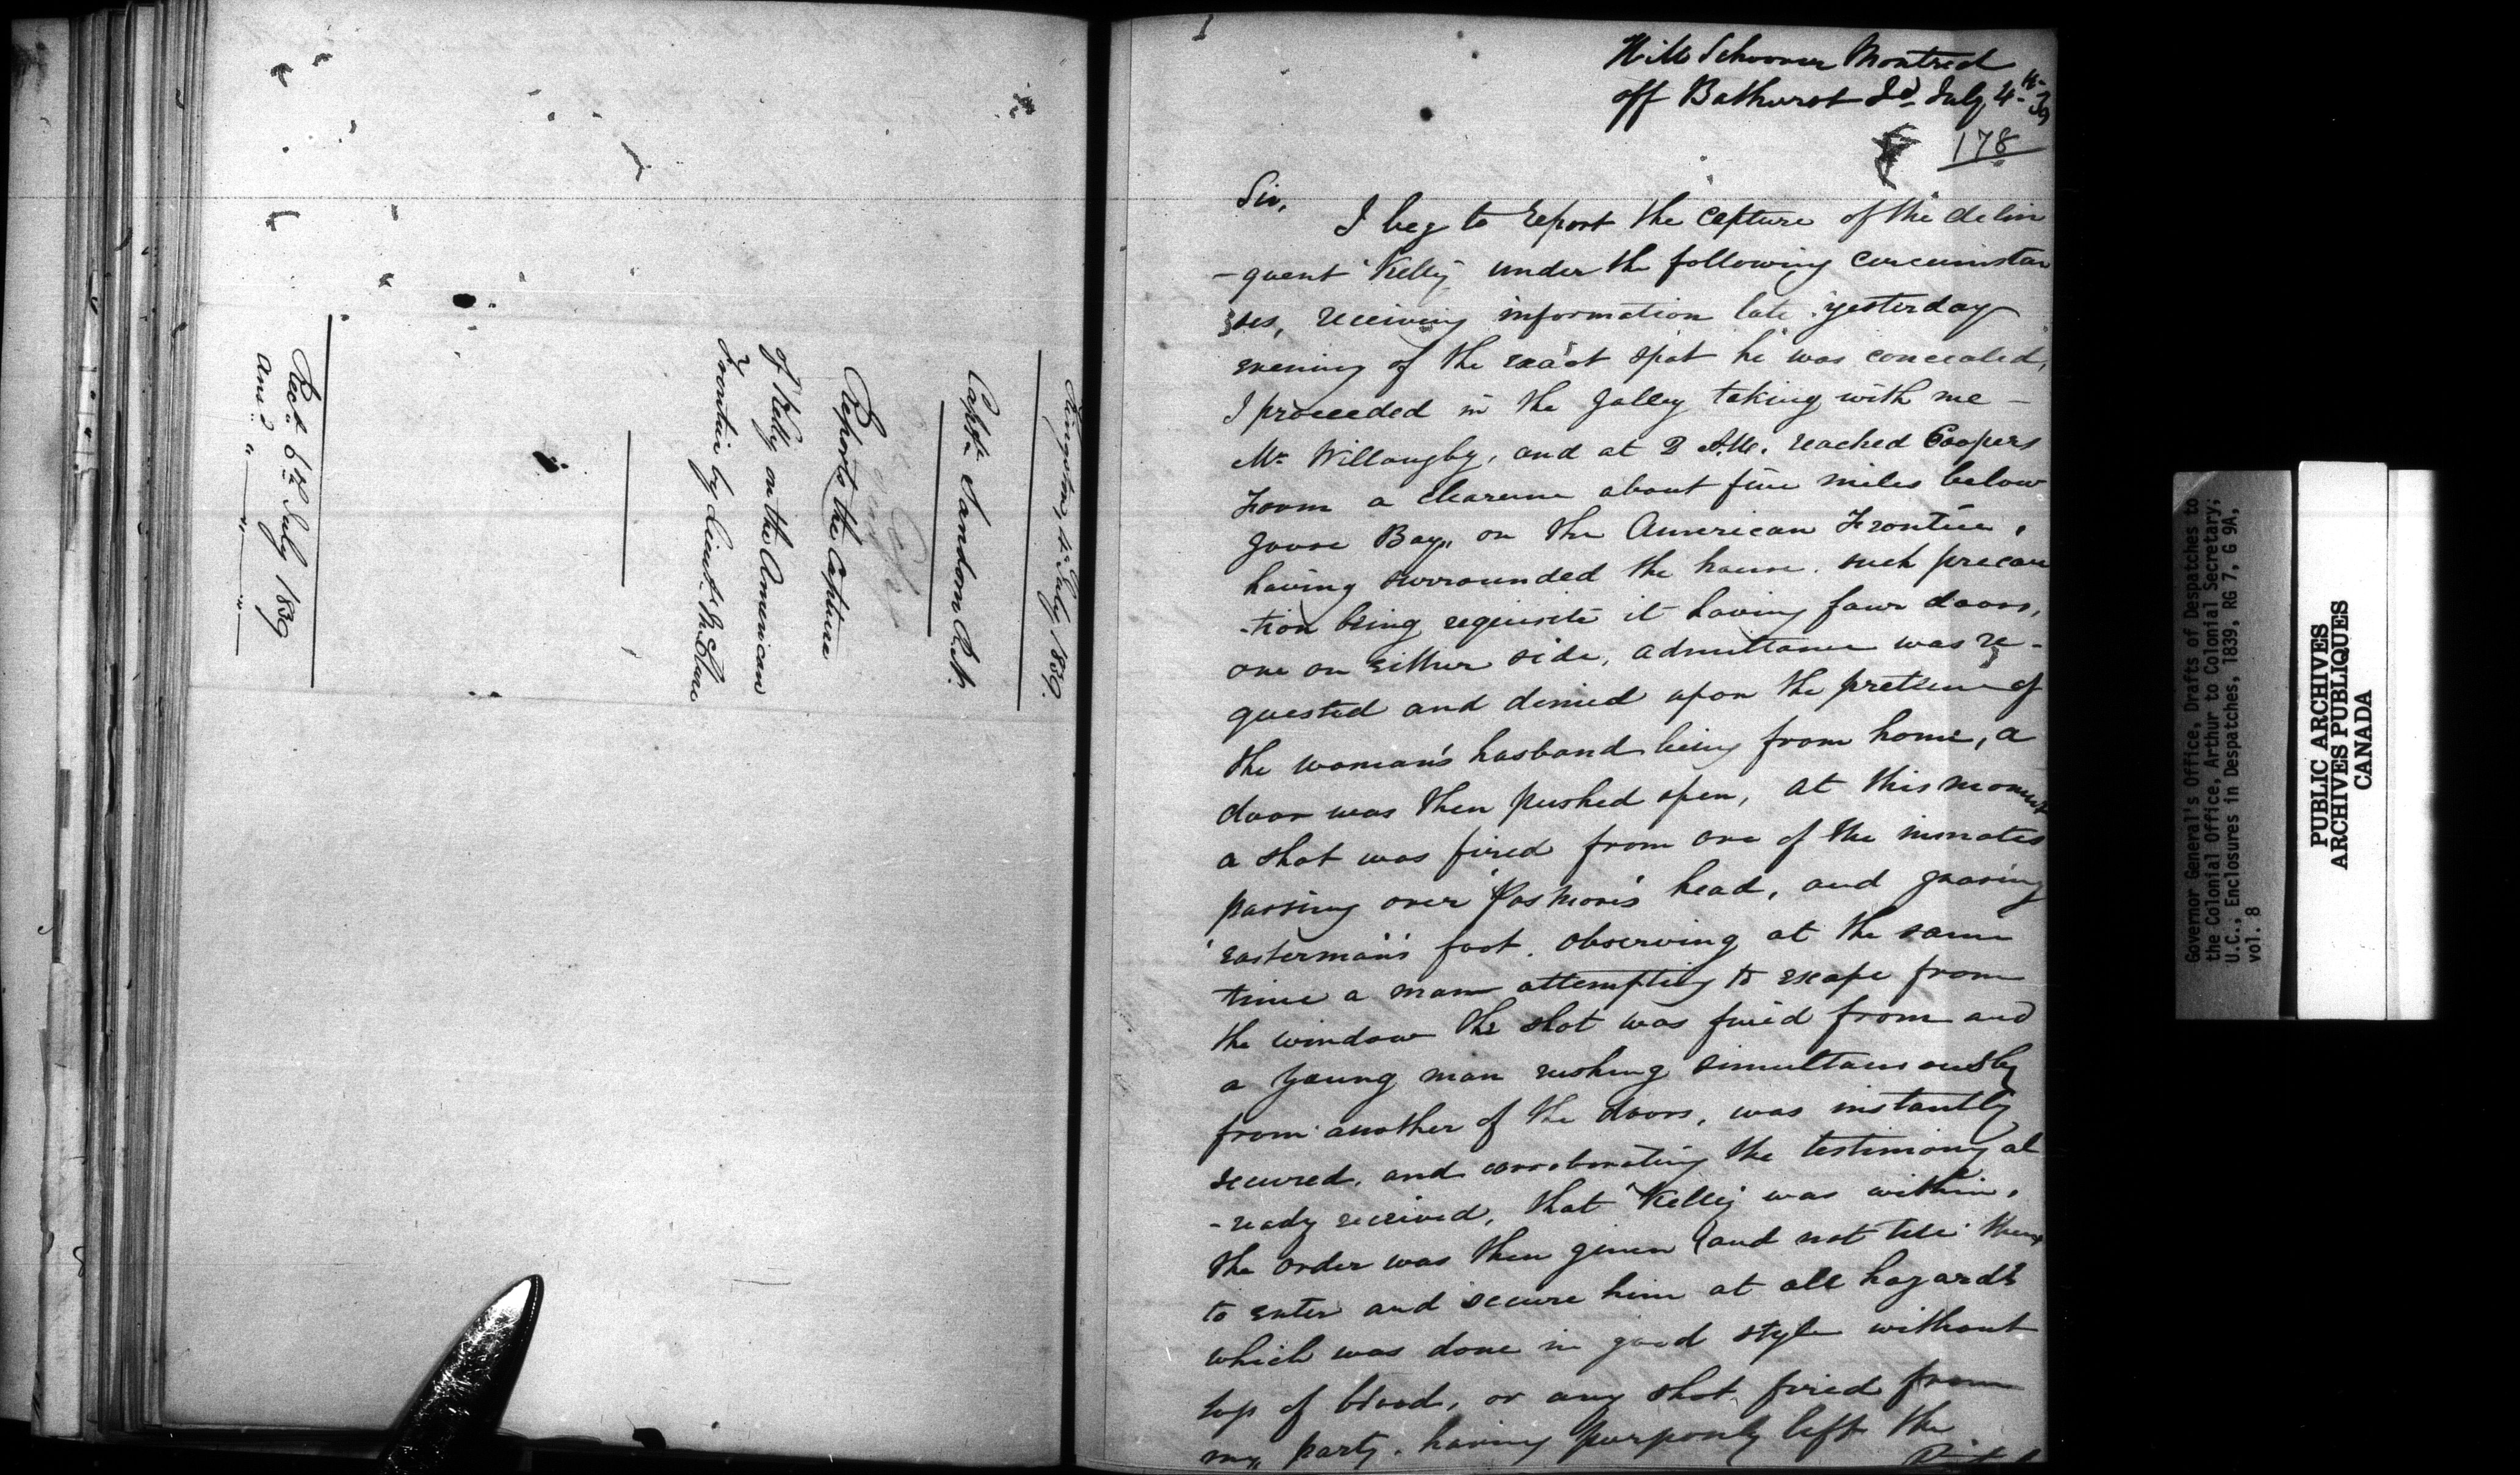 Kingston, 4th July, 1839.
Captn Sandom R.N.
Reports the Capture
of Kelly on the American
Frontier by Lieut.
Rec.d 6th July 1839
Ans.d " " "
H M Schooner Montreal
off Bathurst Id. July 4th 39
178
Sir,
I beg to report the capture of the delin
-quent 'Kelly' under the following circumstan
ses, receiving information late yesterday
evening of the exact spot he was concealed,
I proceeded in the galley taking with me -
Mr Willougby, and at 2 A.M. reached Coopers
Form a clearence about five miles below
Goose Bay, on the American Frontier,
having surrounded the house, such precau
-tion being requisite it having four doors,
one on either side, admittance was re-
quested and denied upon the pretence of
the woman's husband being from home, a
door was then pushed open, at this moment
a shot was fired from one of the inmates
passing over head, and grazing
'Easterman's' foot. observing at the same
time a man attempting to escape from
the window the shot was fired from and
a young man rushing simultaneously
from another of the doors, was instantly
secured, and corroborating the testimony al
-ready received, that 'Kelly' was within,
the order was then given (and not till then)
to enter and secure him at all hazards
which was done in good style without
loss of blood, or any shot fired from
my party, having purposely left the
PUBLIC ARCHIVES
ARCHIVES PUBLIQUES
CANADA
Governor General's Office, Drafts of Despatches to
the Colonial Office, Arthur to Colonial Secretary;
U.C., Enclosures in Despatches, 1839, RG 7, G 9A,
vol. 8